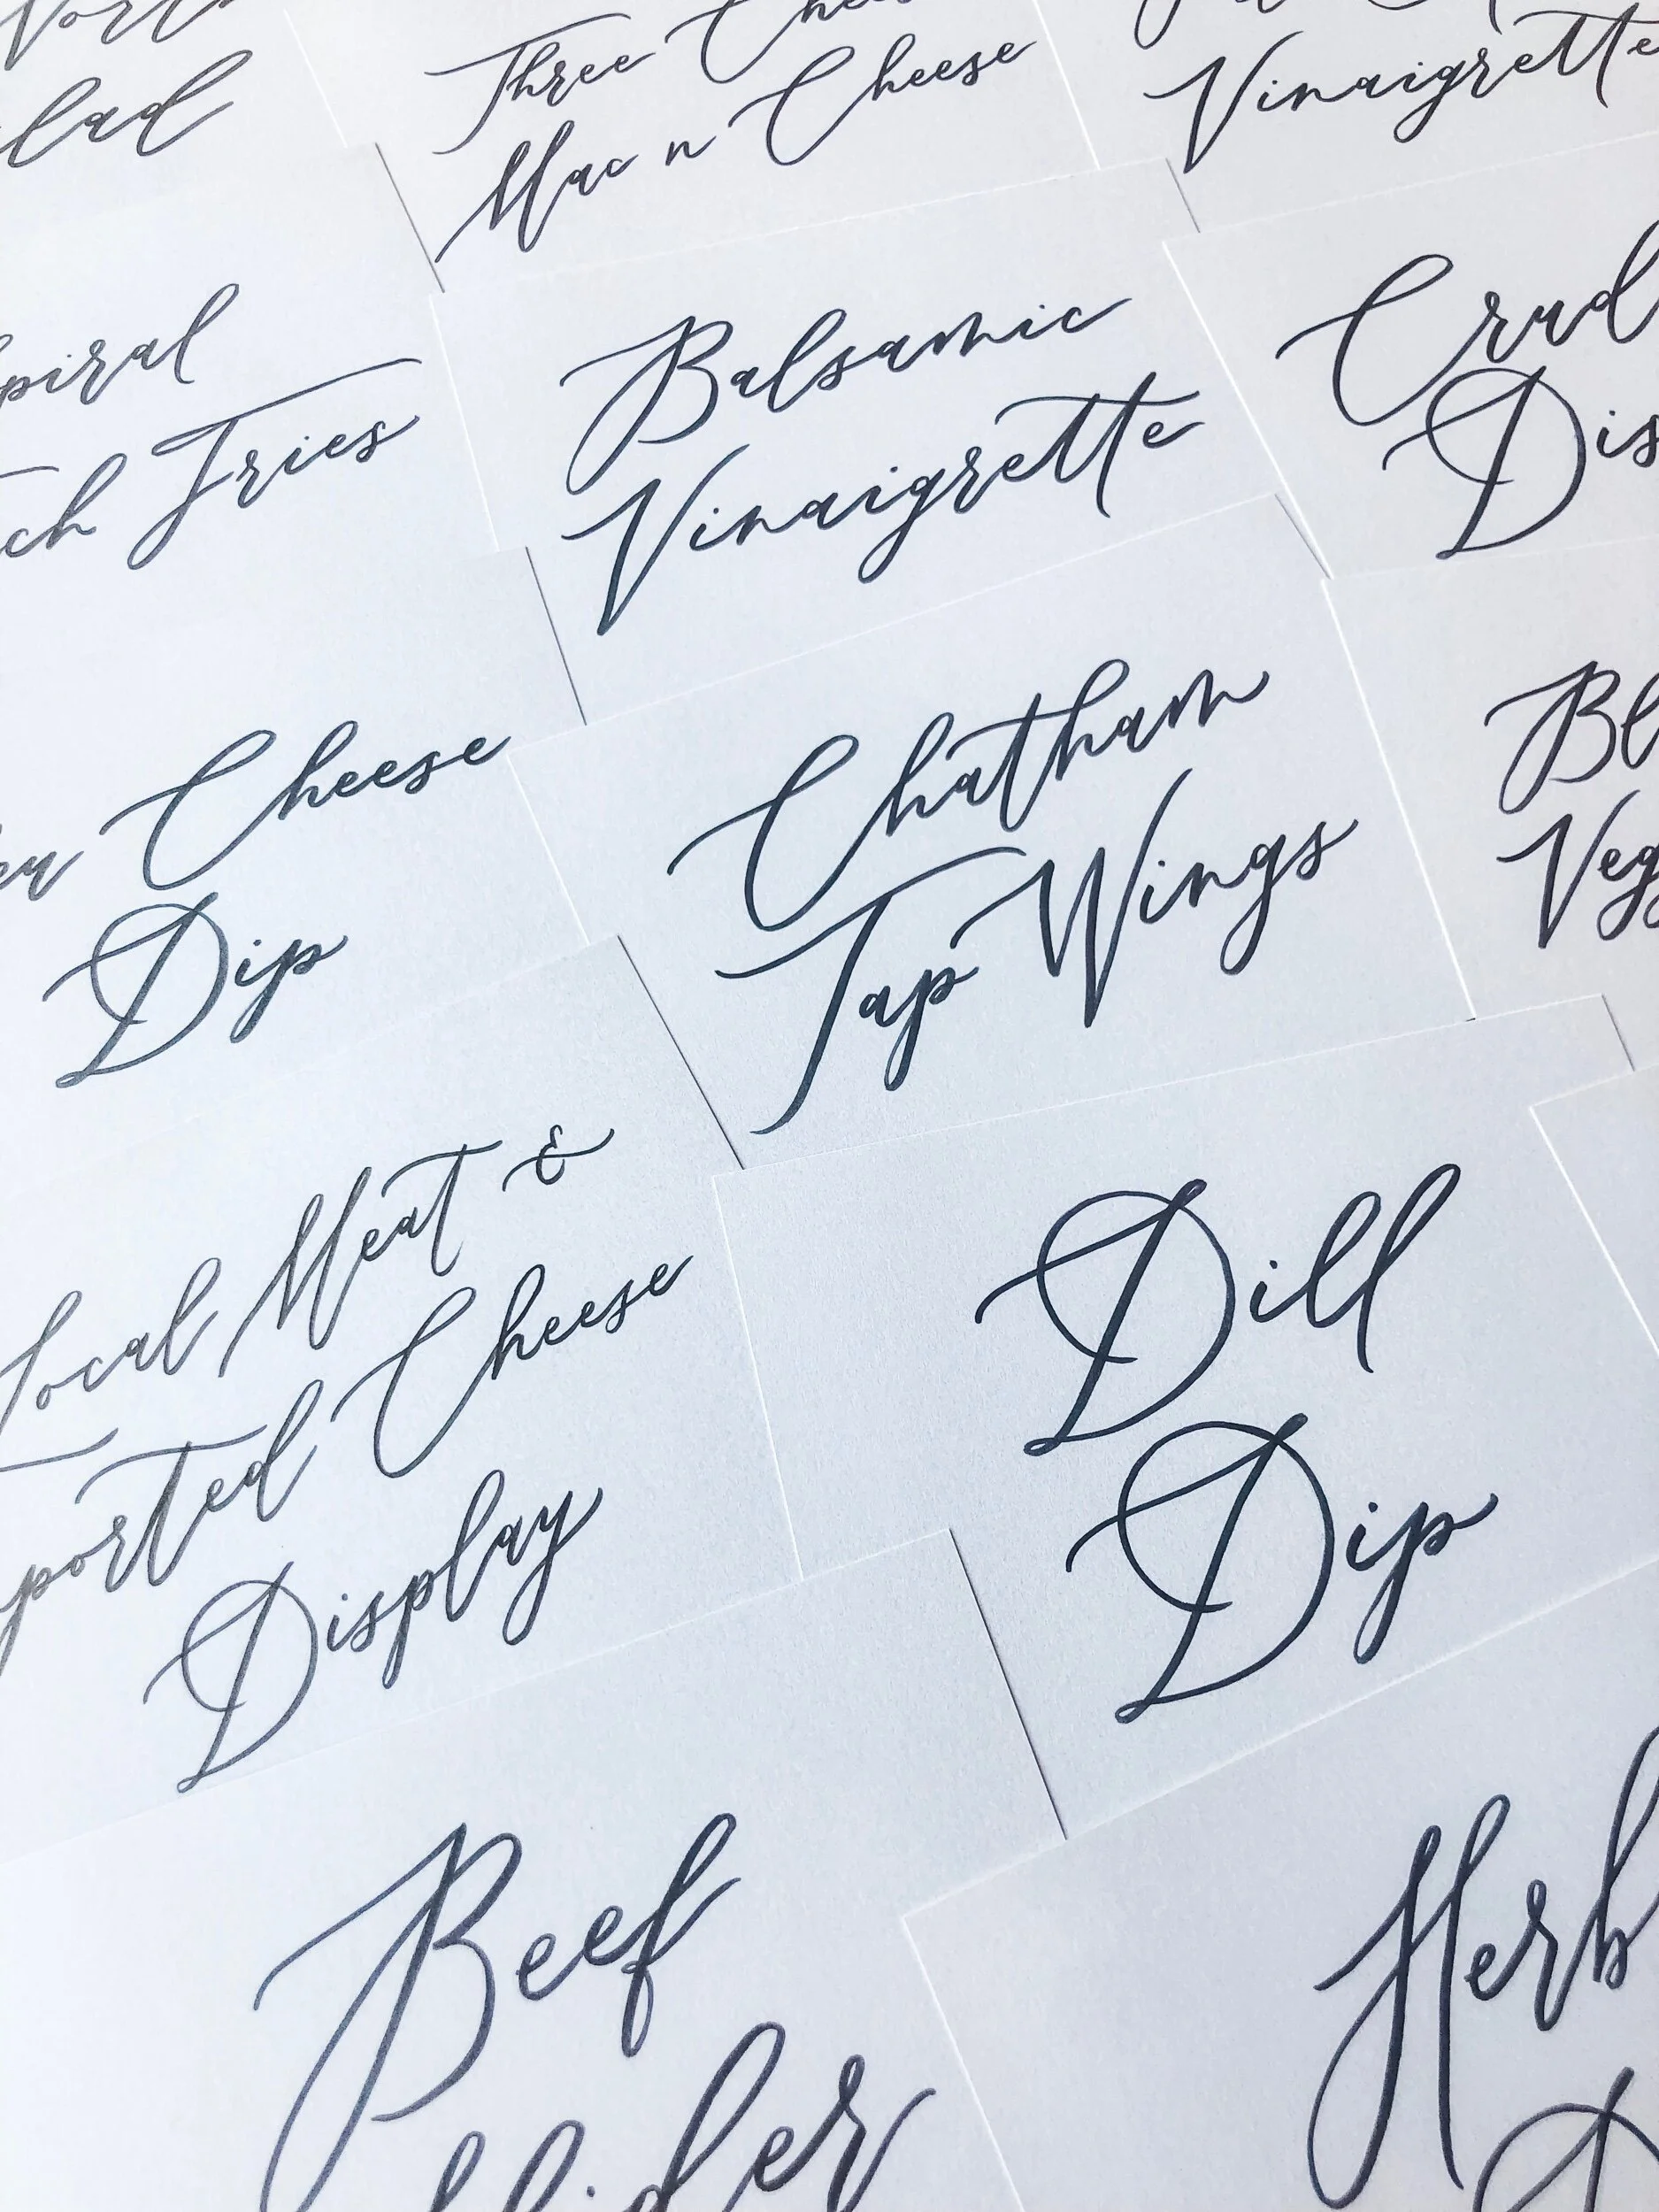 Three
Mac n Cheese
Vinaigrette
Fries
Balsamic
Vinaigrette
Dis
Cheese
Dip
Chatham
Tap Wings
Local Meat &
ported Cheese
Display
Dill
Dip
Beef
Herb